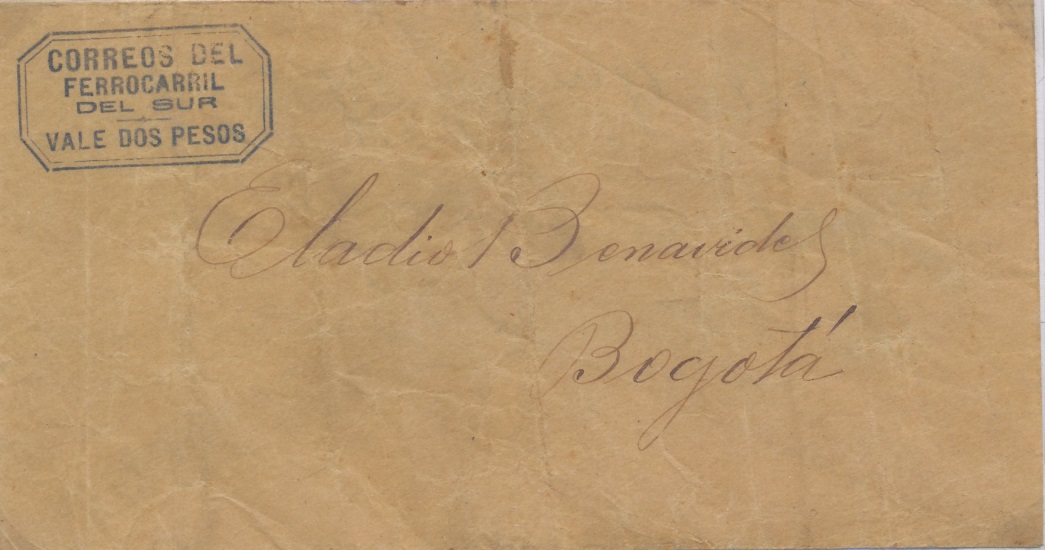 CORREOS DEL
FERROCARRIL
DEL SUR
VALE DOS PESOS
Eladio Benavides
Bogotá